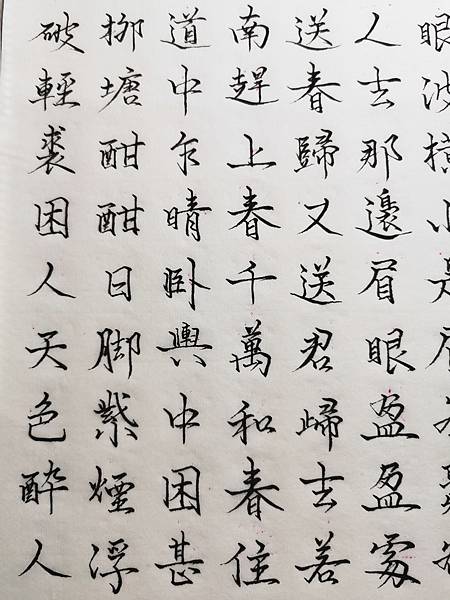 眼波橫
人去那邊眉眼盈盈處
送春歸又送君歸去若
南趕上春千萬和春住
道中乍晴卧輿中困甚
柳塘酣酣日脚紫煙浮
破輕裘困人天色醉人